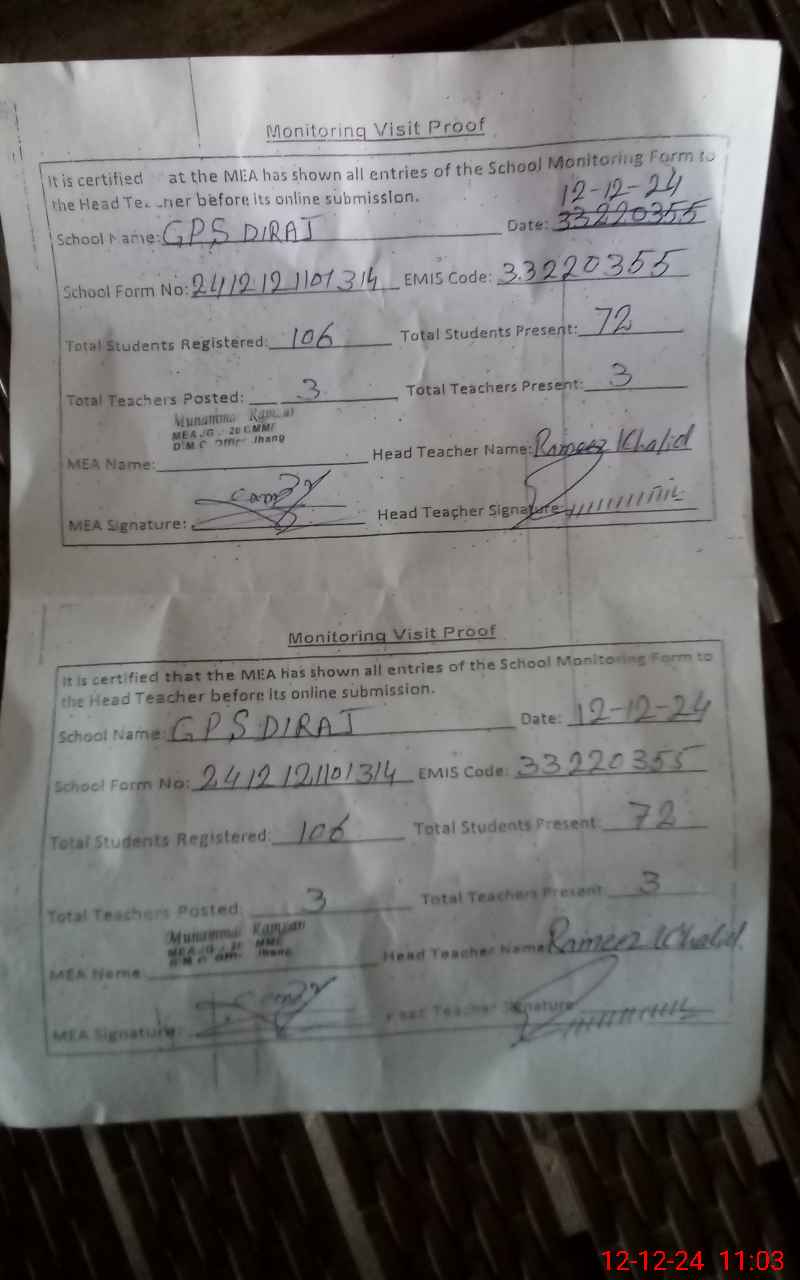 Monitoring Visit Proof
It is certified at the MEA has shown all entries of the School Monitoring Form to
the Head Te...ner before its online submission.
12-12-24
School Name: GPS DIRAJ Date: 33220355
School Form No: 2412121101314 EMIS Code: 33220355
Total Students Registered: 106 Total Students Present: 72
Total Teachers Posted: 3 Total Teachers Present: 3
MEA
Jhang
MEA Name: Head Teacher Name: Rameez Khalid
MEA Signature: Head Teacher Signature
Monitoring Visit Proof
It is certified that the MEA has shown all entries of the School Monitoring Form to
the Head Teacher before its online submission.
School Name: GPS DIRAJ Date: 12-12-24
School Form No: 2412121101314 EMIS Code: 33220355
Total Students Registered: 106 Total Students Present: 72
Total Teachers Posted: 3 Total Teachers Present: 3
Jhang
MEA Name Head Teacher Name Rameez Khalid
MEA Signature: Head Teacher Signature
12-12-24 11:03